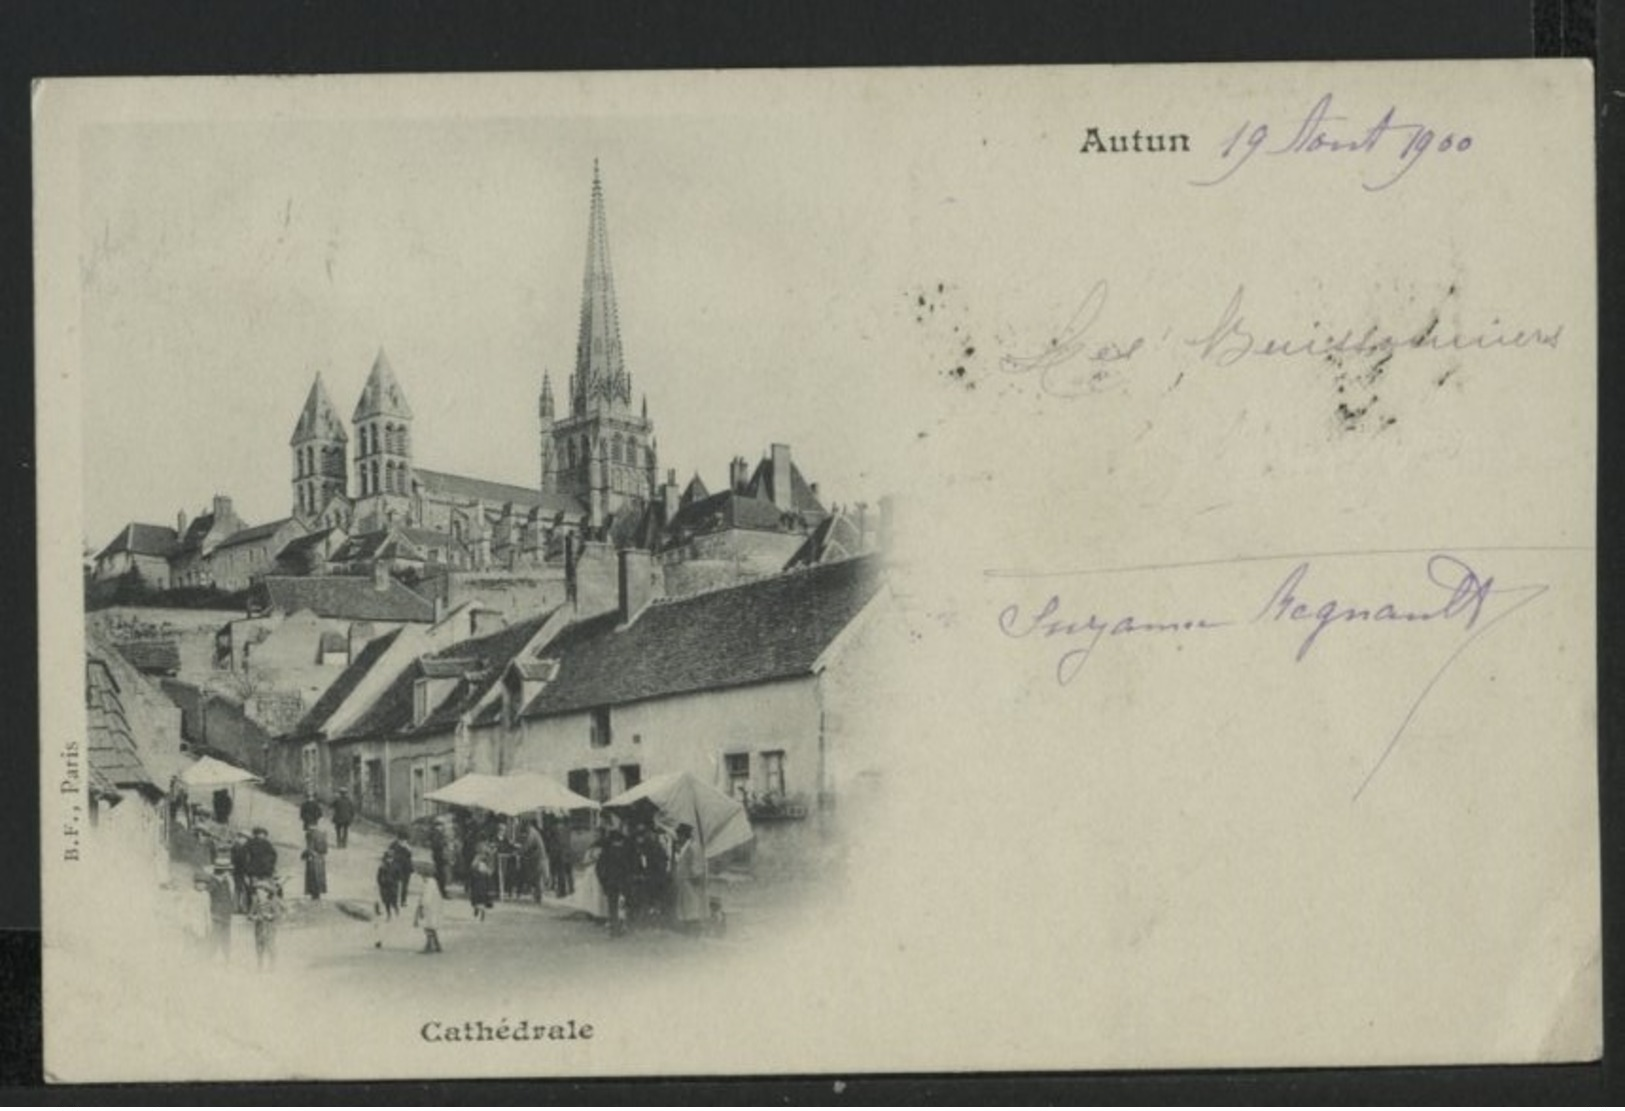 Autun 19 Août 1900
Les Buissonniers
Suzanne Regnault
B.F., Paris
Cathédrale